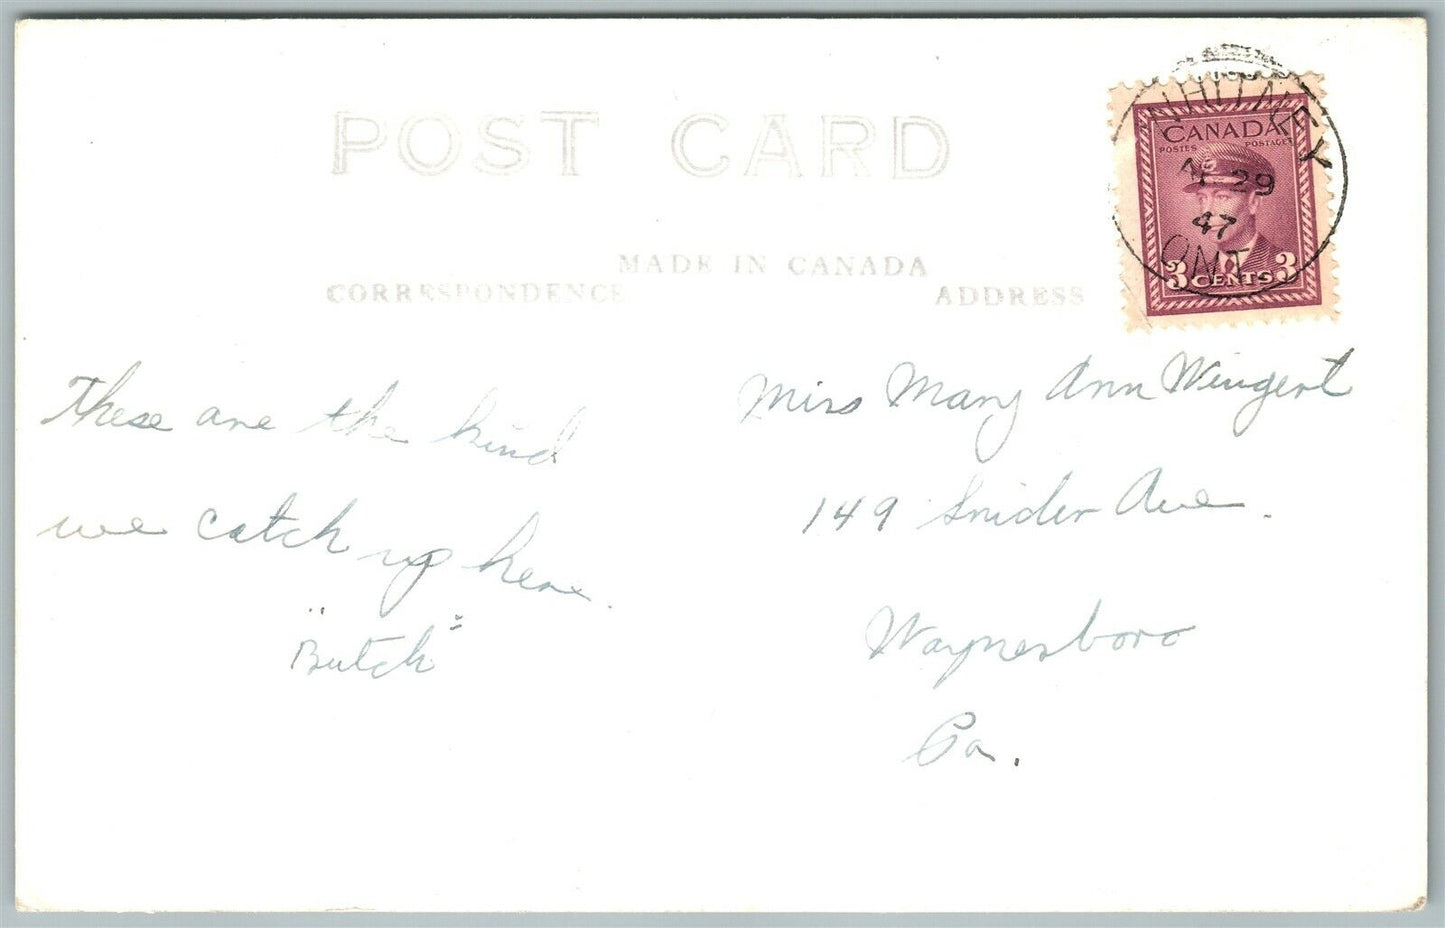 POST CARD
MADE IN CANADA
CORRESPONDENCE
ADDRESS
WHITNEY
29
47
ONT.
CANADA
POSTES POSTAGE
3 CENTS 3
These are the kind
we catch up here.
"Butch"
Miss Mary Ann Wingert
149 Snider Ave.
Waynesboro
Pa.